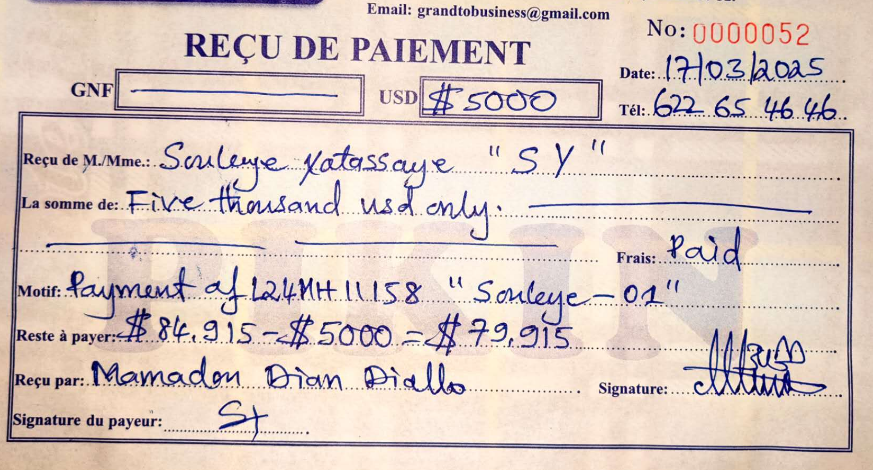 Email: grandtobusiness@gmail.com
No: 0000052
REÇU DE PAIEMENT
Date: 17/03/2025
GNF USD $5000
Tél: 622 65 46 46
Reçu de M./Mme.: Souleye Yatassaye "SY"
La somme de: Five thousand usd only.
Frais: Paid
Motif: Payment of L24MH11158 "Souleye-01"
Reste à payer: $84.915-$5000=$79.915
Reçu par: Mamadou Dian Diallo Signature:
Signature du payeur: SY